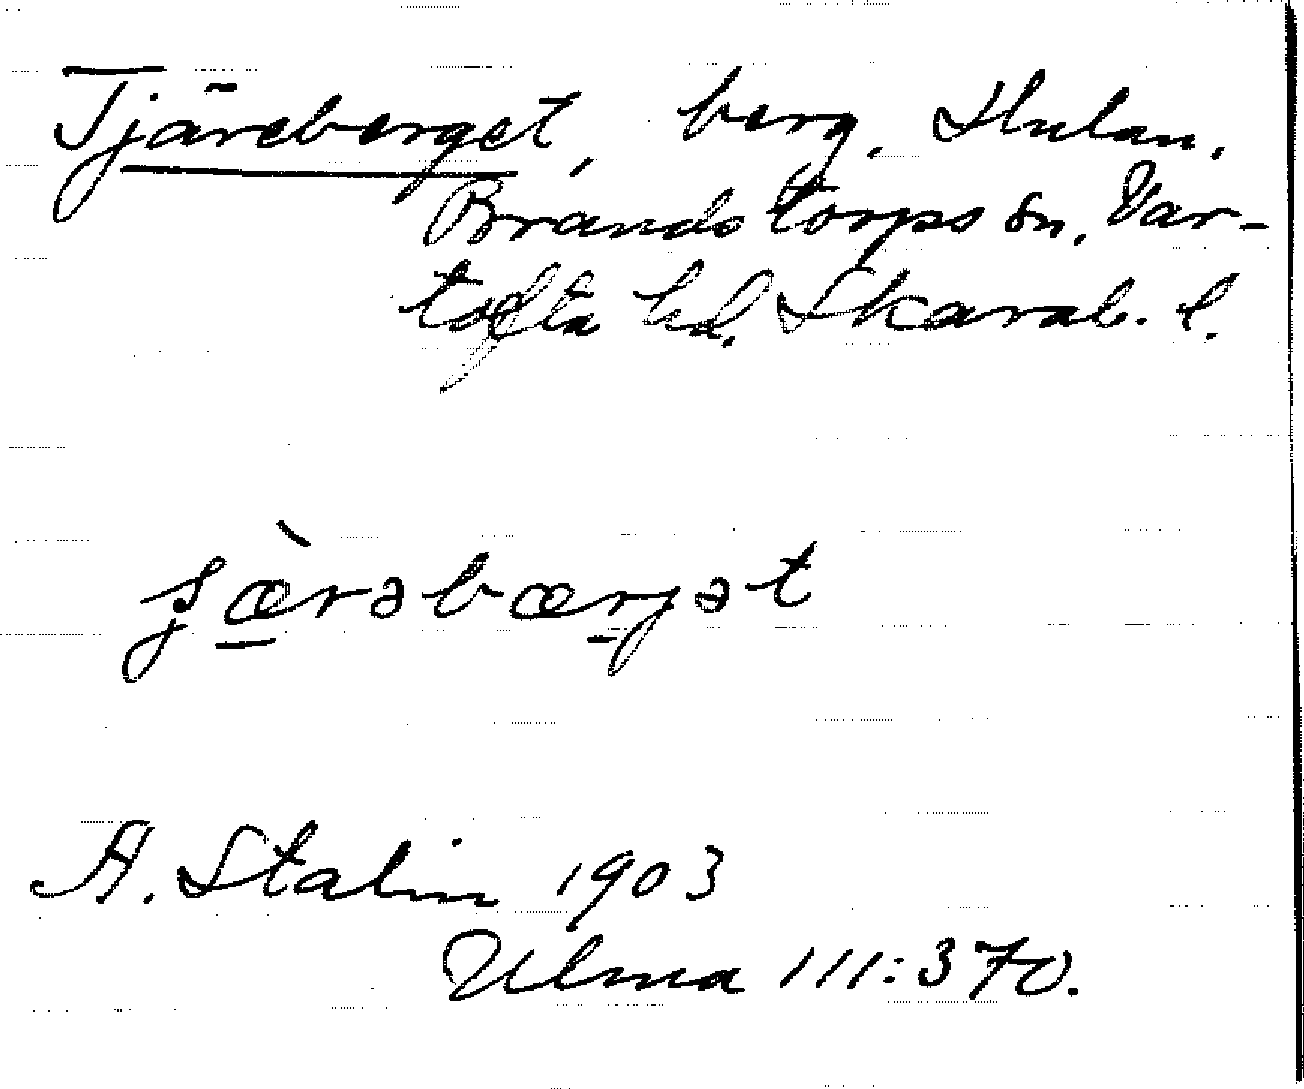 Tjäreberget, berg. Hulan.
Brandstorps sn, Var-
tofta hd. Skarab. l.
ʂæ̀rəbærjət
A. Stalin 1903
Ulma 111:370.